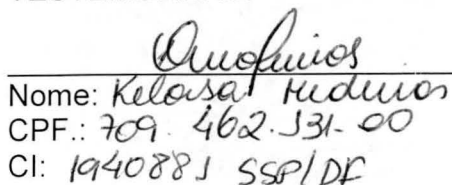 Nome: Keloisa Medeiros
CPF.: 709.462.131-00
CI: 1940881 SSP/DF